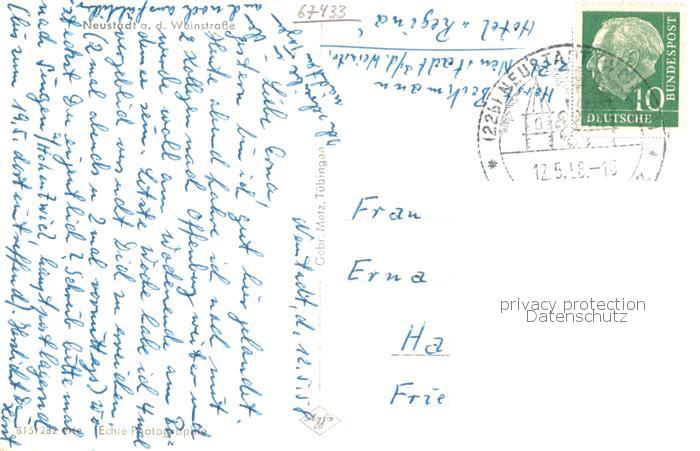 67433
Neustadt a. d. Weinstraße
Hotel „Regina"
Neustadt a/d. Weinstr.
Horst Beckmann
Neustadt, d. 12.5.58
Liebe Erna,
gestern bin ich gut hier gelandet.
Heute abend fahre ich noch mit
2 Kollegen nach Offenburg weiter u.
werde wohl am Wochenende am Bo-
densee sein. Letzte Woche habe ich 4 mal
vergeblich versucht Dich zu erreichen
(2 mal abends u. 2 mal vormittags) Wo
steckst Du eigentlich? Schreib bitte mal
nach Singen/Hohentwiel hauptpostlagernd
(bis zum 19.5. dort eintreffend). Herzlichst Dein
Horst
Gebr. Metz, Tübingen
815/282 Echte Photographie
(22b) NEUSTADT
12.5.58.-16
10
DEUTSCHE
BUNDESPOST
Frau
Erna
Ha
Frie
privacy protection
Datenschutz